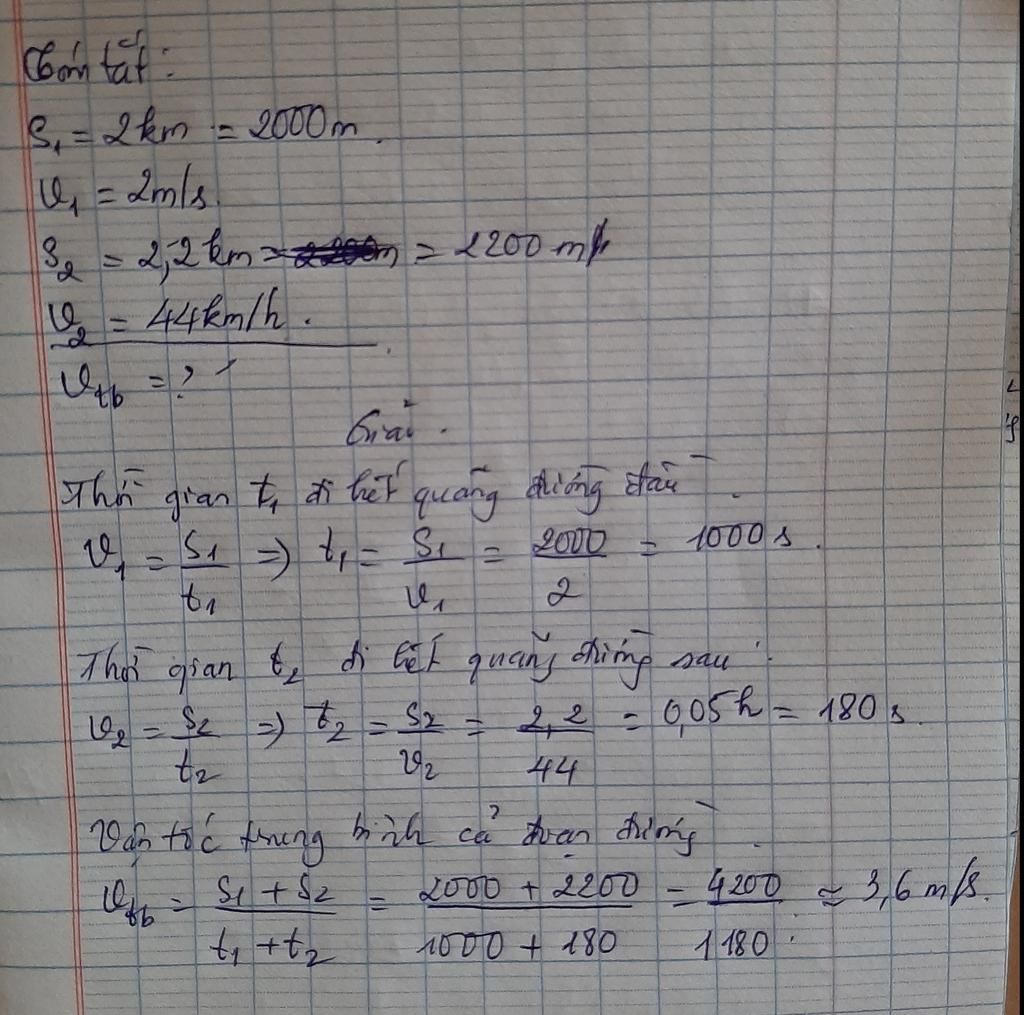 Tóm tắt :
S₁ = 2km = 2000m.
v₁ = 2m/s.
S₂ = 2,2km = = 2200 m
v₂ = 44km/h.
vtb = ?
Giải.
Thời gian t₁ đi hết quãng đường đầu.
v₁ = S₁/t₁ => t₁ = S₁/v₁ = 2000/2 = 1000 s.
Thời gian t₂ đi hết quãng đường sau.
v₂ = S₂/t₂ => t₂ = S₂/v₂ = 2,2/44 = 0,05h = 180 s.
Vận tốc trung bình cả đoạn đường.
vtb = S₁ + S₂/t₁ + t₂ = 2000 + 2200/1000 + 180 = 4200/1180 ≈ 3,6 m/s.